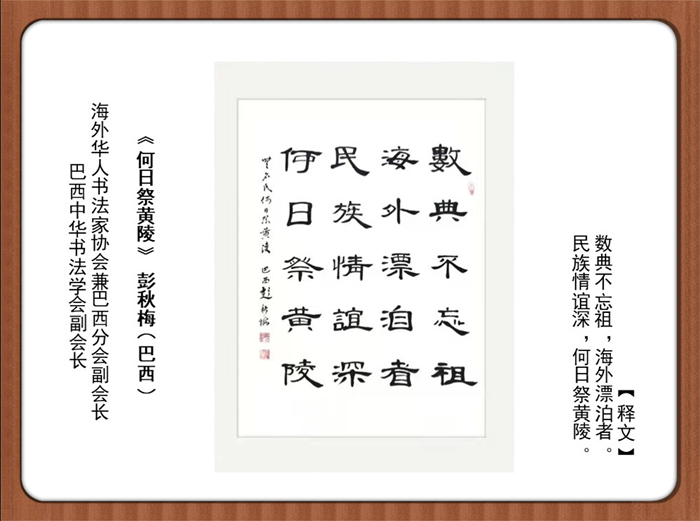 【释文】
数典不忘祖，海外漂泊者。
民族情谊深，何日祭黄陵。
數典不忘祖
海外漂泊者
民族情誼深
何日祭黄陵
何日祭黄陵 巴西彭秋梅
《何日祭黄陵》彭秋梅（巴西）
海外华人书法家协会兼巴西分会副会长
巴西中华书法学会副会长